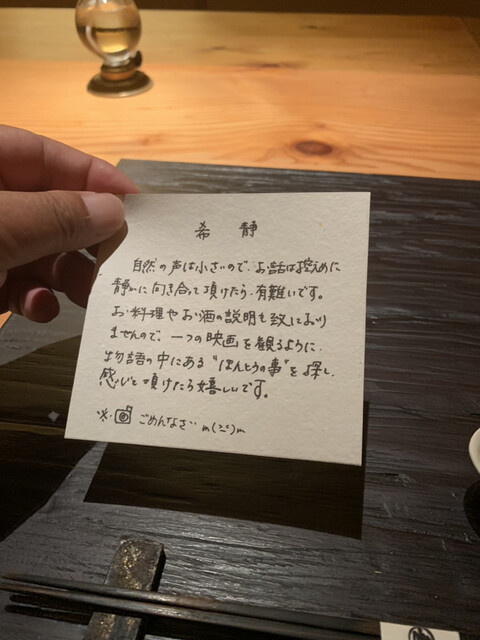 希 静
自然の声は小さいので、お話は控えめに
静かに向き合って頂けたら有難いです。
お料理やお酒の説明も致しており
ませんので、一つの映画を観るように、
物語の中にある“ほんとうの事”を探し、
感じて頂けたら嬉しいです。
※ ごめんなさい m(__)m